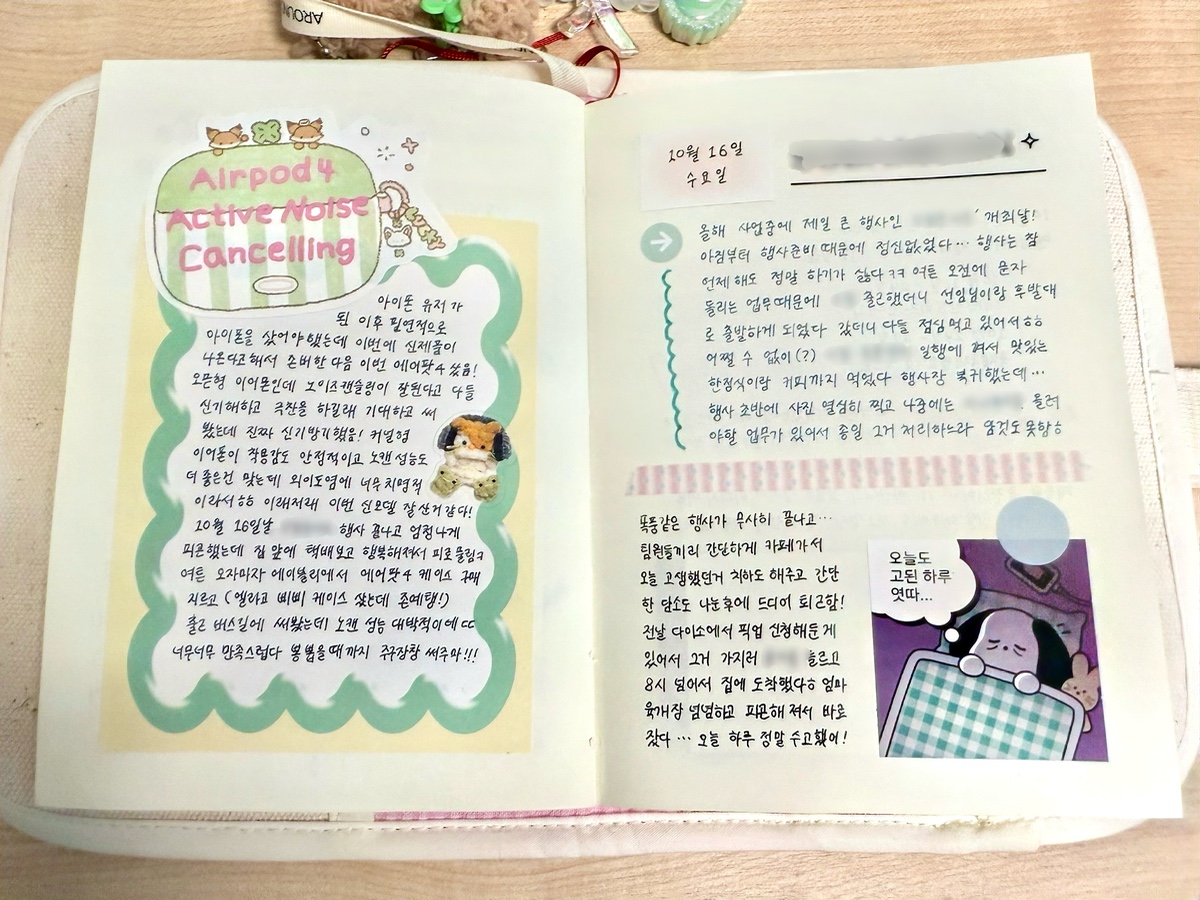 AROUN
Airpod 4
Active Noise
Cancelling
Lucky
아이폰 유저가
된 이후 필연적으로
아이폰을 샀어야 했는데 이번에 신제품이
나온다고 해서 존버한 다음 이번 에어팟4 샀음!
오픈형 이어폰인데 노이즈캔슬링이 잘된다고 다들
신기해하고 극찬을 하길래 기대하고 써
봤는데 진짜 신기방기했음! 커널형
이어폰이 착용감도 안정적이고 노캔 성능도
더 좋은건 맞는데 외이도염에 너무 치명적
이라서ㅎㅎ 이래저래 이번 신모델 잘 산거 같다!
10월 16일날 행사 끝나고 엄청나게
피곤했는데 집 앞에 택배보고 행복해져서 피로 풀림ㅋ
여튼 오자마자 에이블리에서 에어팟4 케이스 구매
지르고 (앨라고 삐삐 케이스 샀는데 존예탱!)
출근 버스길에 써봤는데 노캔 성능 대박적이에 ㄷㄷ
너무너무 만족스럽다 뽕뽑을때까지 주구장창 써주마!!!
10월 16일
수요일
올해 사업중에 제일 큰 행사인 ' 개최날!
아침부터 행사준비 때문에 정신없었다… 행사는 참
언제 해도 정말 하기가 싫다ㅋㅋ 여튼 오전에 문자
돌리는 업무때문에 출근했더니 선임님이랑 후발대
로 출발하게 되었다 갔더니 다들 점심먹고 있어서ㅎㅎ
어쩔 수 없이(?) 일행에 껴서 맛있는
한정식이랑 커피까지 먹었다 행사장 복귀했는데…
행사 초반에 사진 열심히 찍고 나중에는 . 올려
야할 업무가 있어서 종일 그거 처리하느라 암것도 못함ㅎ
똑똥같은 행사가 무사히 끝나고…
팀원들끼리 간단하게 카페가서
오늘 고생했던거 치하도 해주고 간단
한 담소도 나눈후에 드디어 퇴근함!
전날 다이소에서 픽업 신청해둔게
있어서 그거 가지러 들르고
8시 넘어서 집에 도착했다ㅎ 엄마
육개장 냠냠하고 피곤해져서 바로
잤다… 오늘 하루 정말 수고했어!
오늘도
고된 하루
엿따...